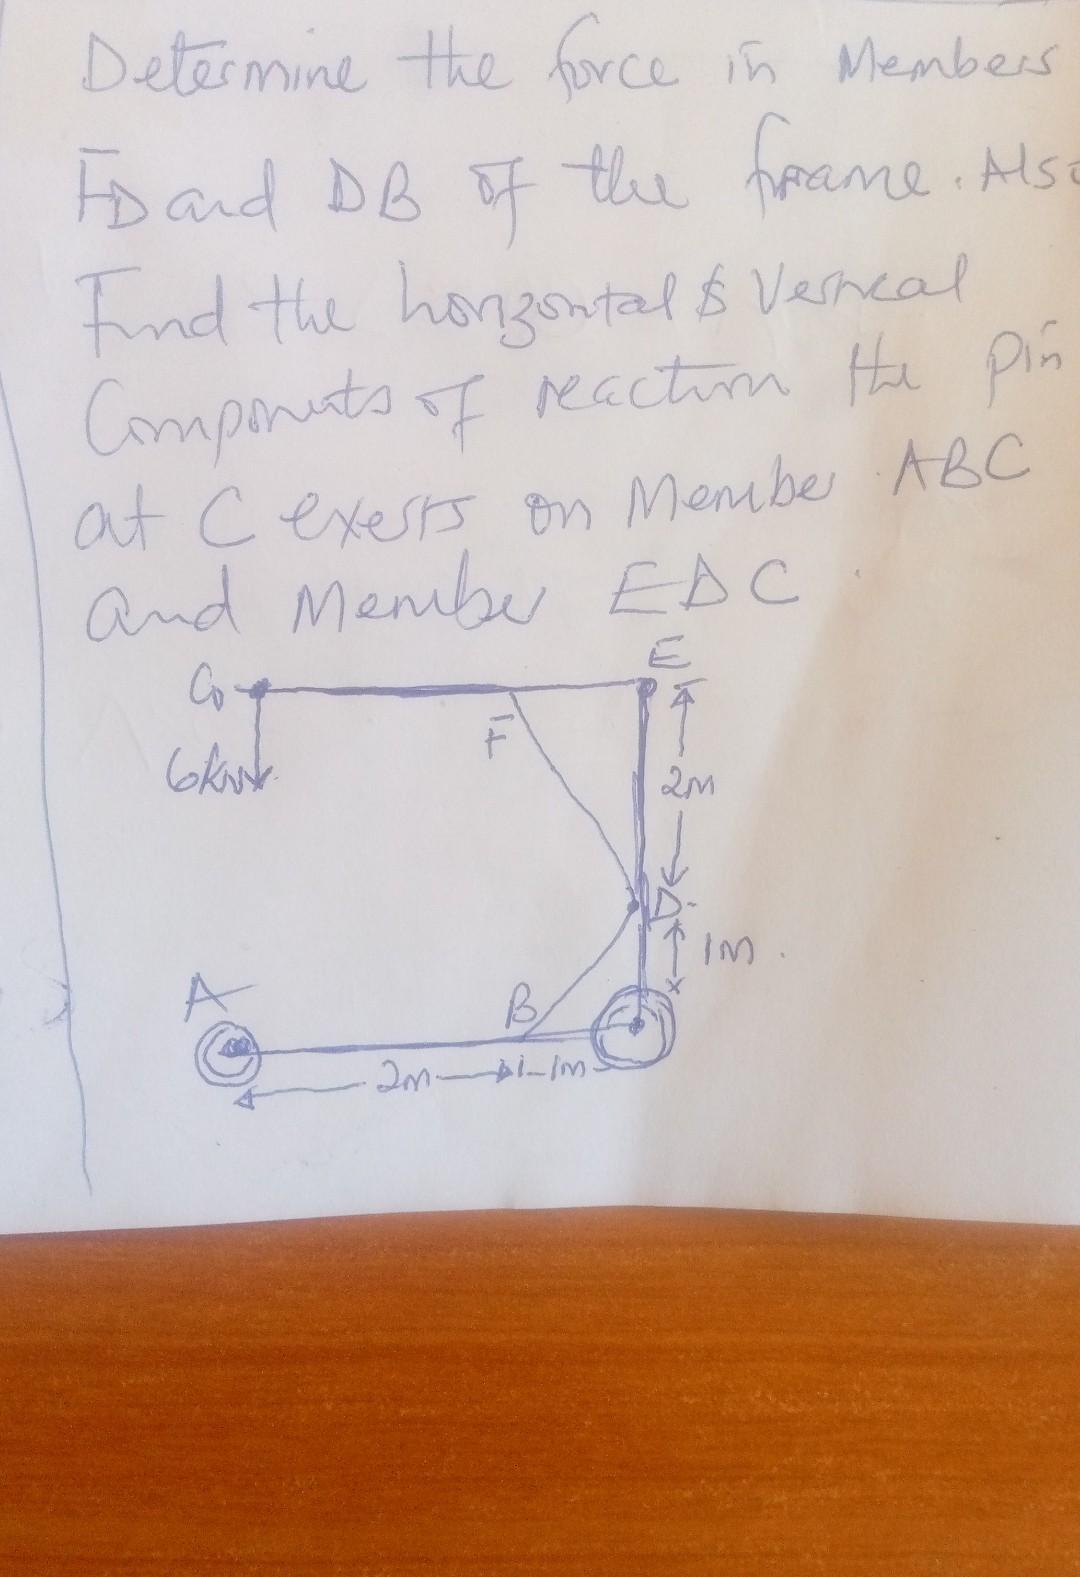 Determine the force in Members
FD and DB of the frame. Also
Find the horizontal & Vertical
Components of reaction the pin
at C exerts on Member ABC
and Member EDC
G
E
F
6kN
2m
D
1m
A
B
2m
1m